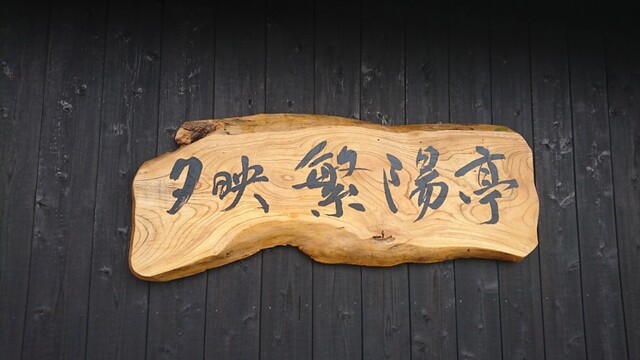 夕映繁陽亭